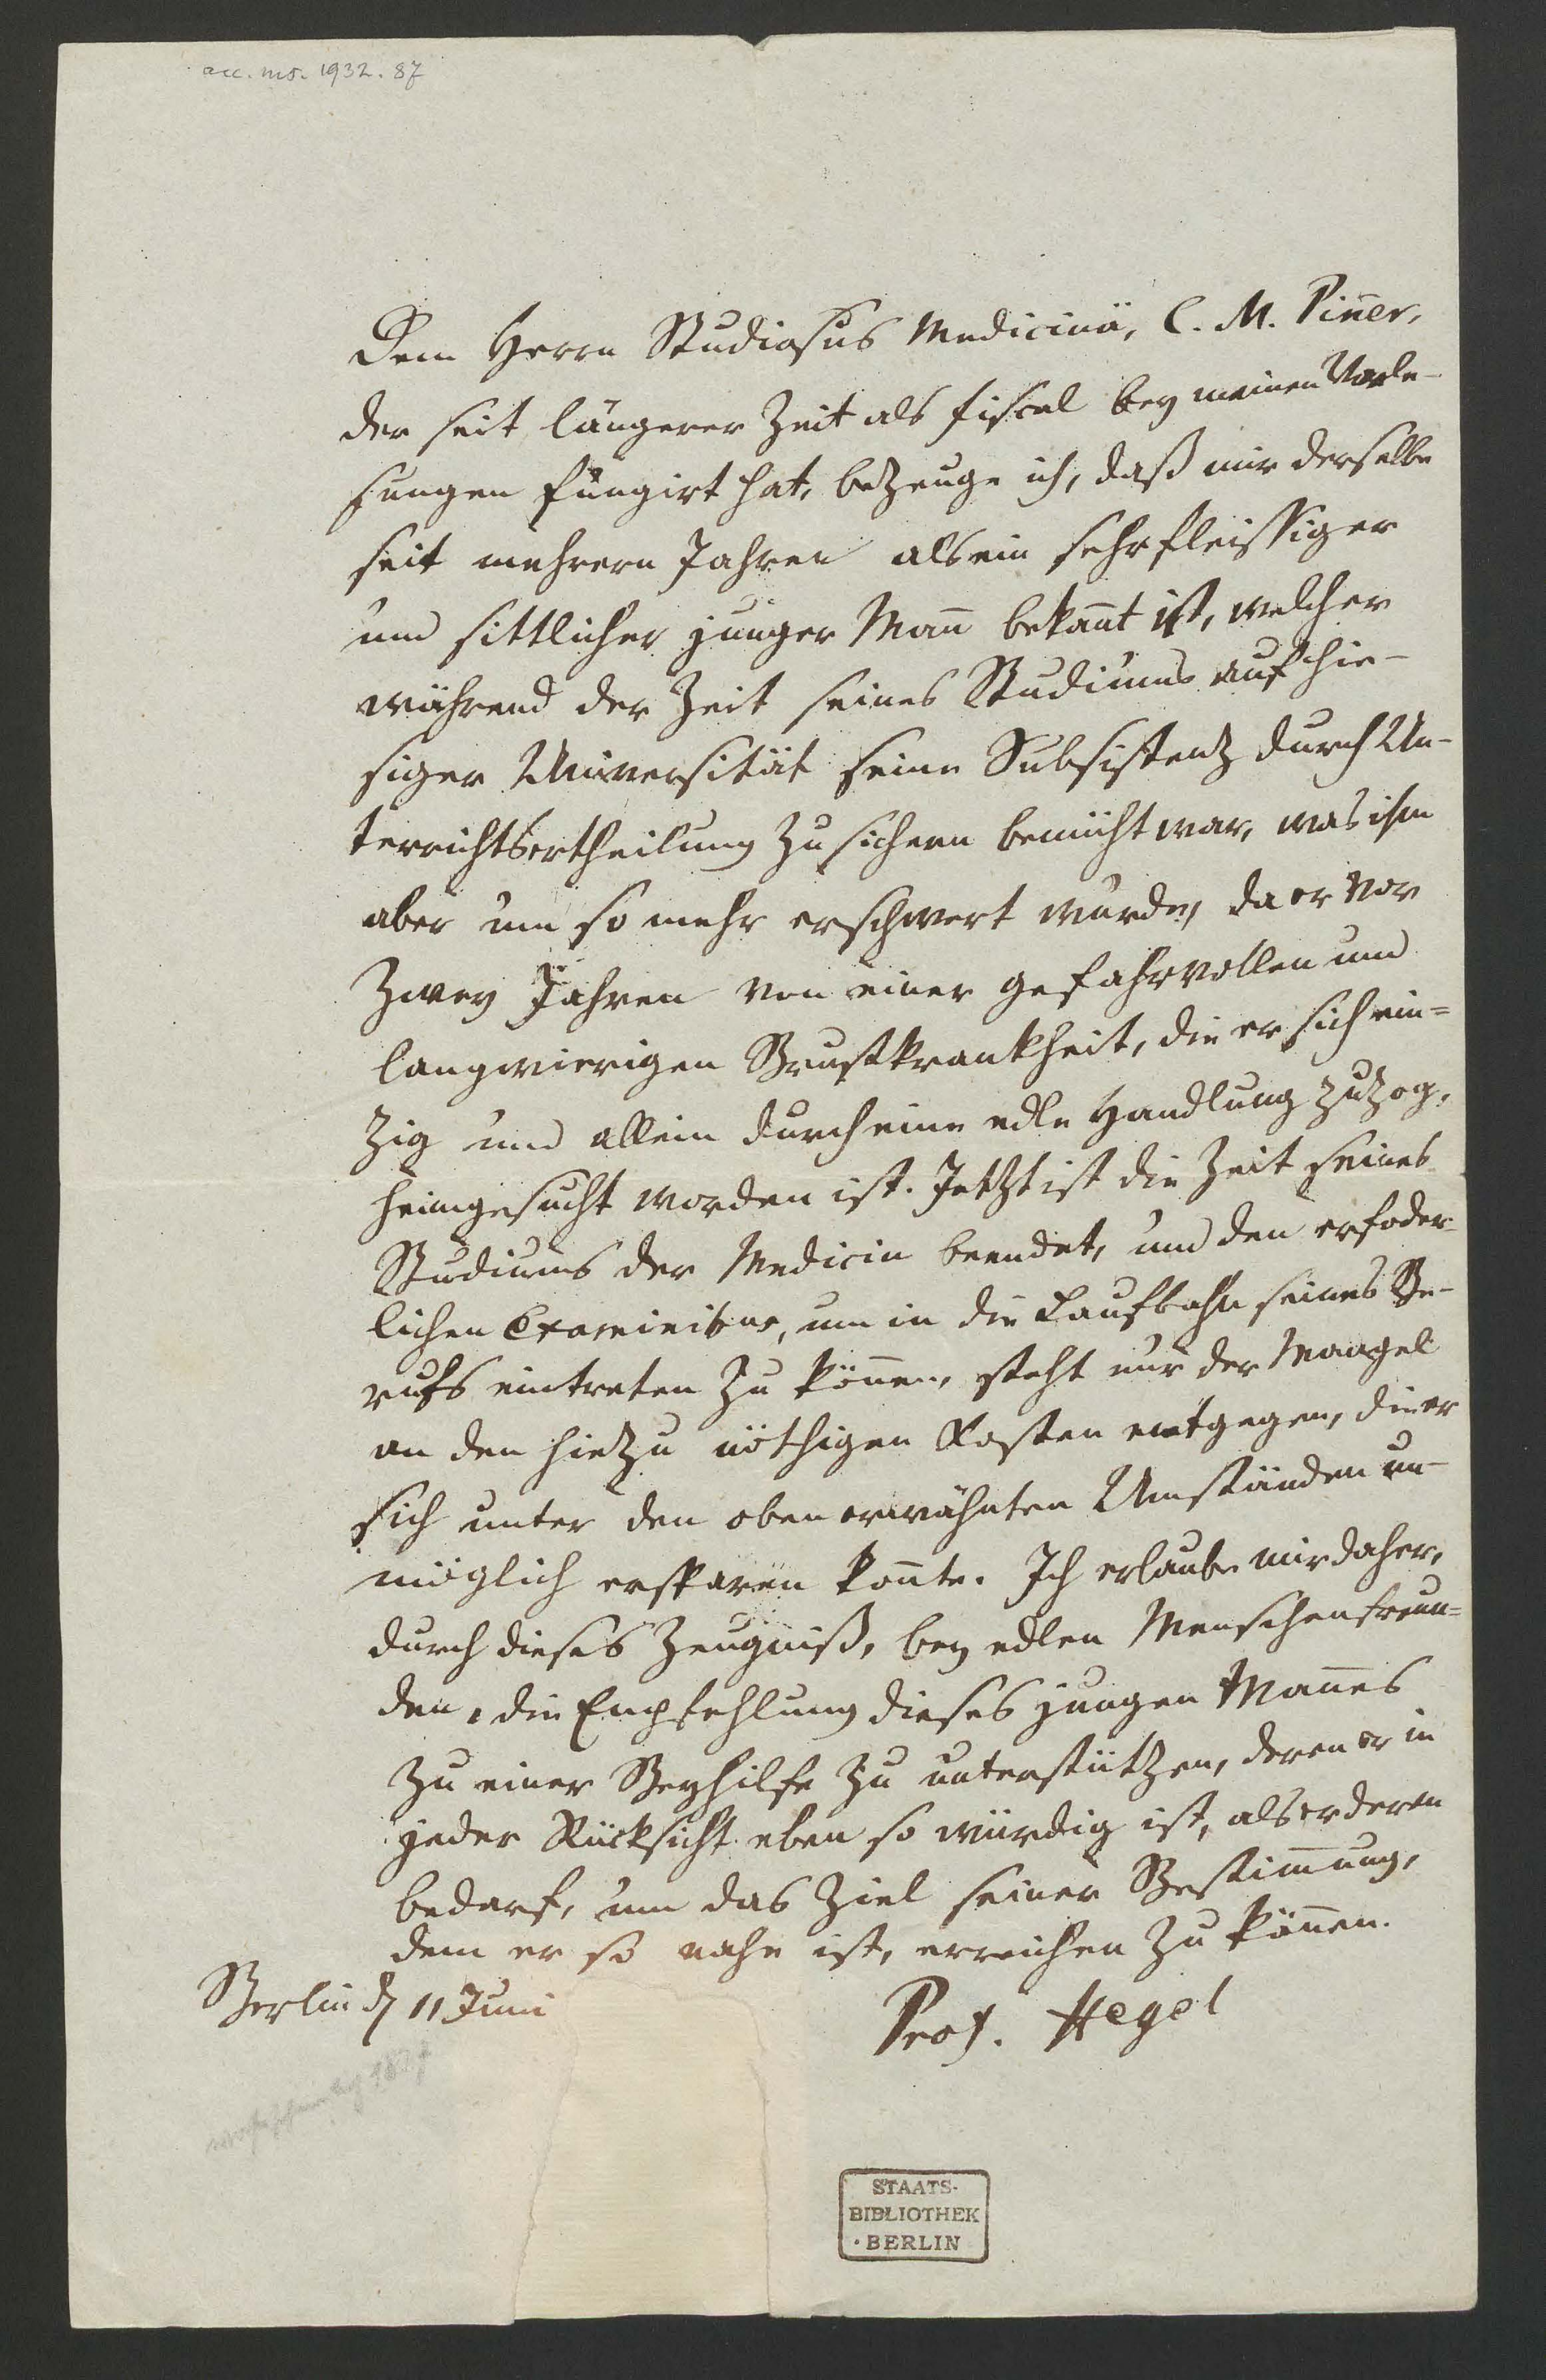 acc. ms. 1932. 87
Dem Herrn Studiosus Medicinä, C. M. Pin̄er,
der seit längerer Zeit als Fiscal bey meinen Vorle-
sungen fungirt hat, bezeuge ich, daß mir derselbe
seit mehrern Jahren als ein sehr fleissiger
und sittlicher junger Man̄ bekan̄t ist, welcher
während der Zeit seines Studiums auf hie-
siger Universität seine Subsistenz durch Un-
terrichtsertheilung zu sichern bemüht war, was ihm
aber um so mehr erschwert wurde, da er vor
zwey Jahren von einer gefahrvollen und
langwierigen Brustkrankheit, die er sich ein=
zig und allein durch eine edle Handlung zuzog,
heimgesucht worden ist. Jetzt ist die Zeit seines
Studiums der Medicin beendet, und den erfoder-
lichen Examinibus, um in die Laufbahn seines Be-
rufs eintreten zu kön̄en, steht nur der Mangel
an den hiezu nöthigen Kosten entgegen, die er
sich unter den oben erwähnten Umständen un-
möglich ersparen kon̄te. Ich erlaube mir daher,
durch dieses Zeugniß, bey edlen Menschenfreun=
den, die Empfehlung dieses jungen Man̄es
zu einer Beyhilfe zu unterstützen, deren er in
jeder Rücksicht eben so würdig ist, als er deren
bedarf, um das Ziel seiner Bestim̄ung,
dem er so nahe ist, erreichen zu kön̄en.
Berlin d. 11 Juni
Prof. Hegel
STAATS-
BIBLIOTHEK
· BERLIN